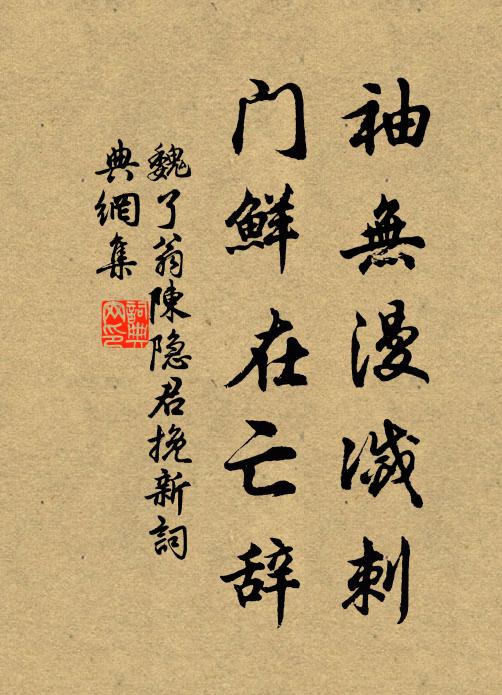 袖無漫滅刺
门鮮在亡辞
魏了翁陳隐君挽新詞
典網集
詞典网印